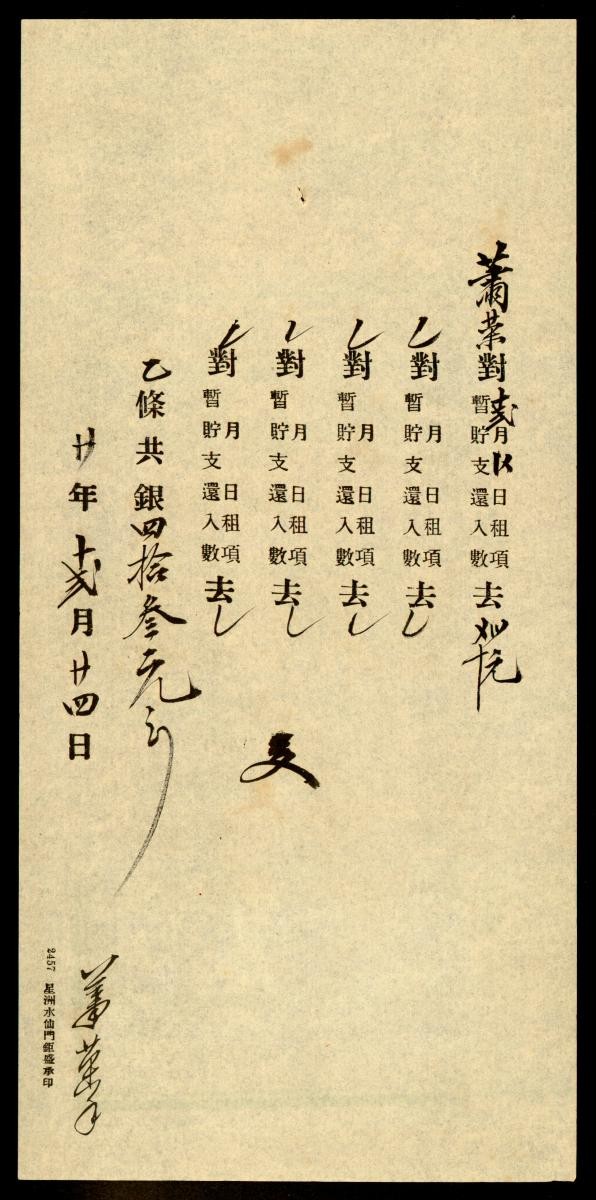 蕭榮對弍月日租項暫貯支還入數去
對月日租項暫貯支還入數去
對月日租項暫貯支還入數去
對月日租項暫貯支還入數去
對月日租項暫貯支還入數去
乙條共銀四拾叁元
廿年十弍月廿四日
蕭榮
2457 星洲水仙門鉅盛承印